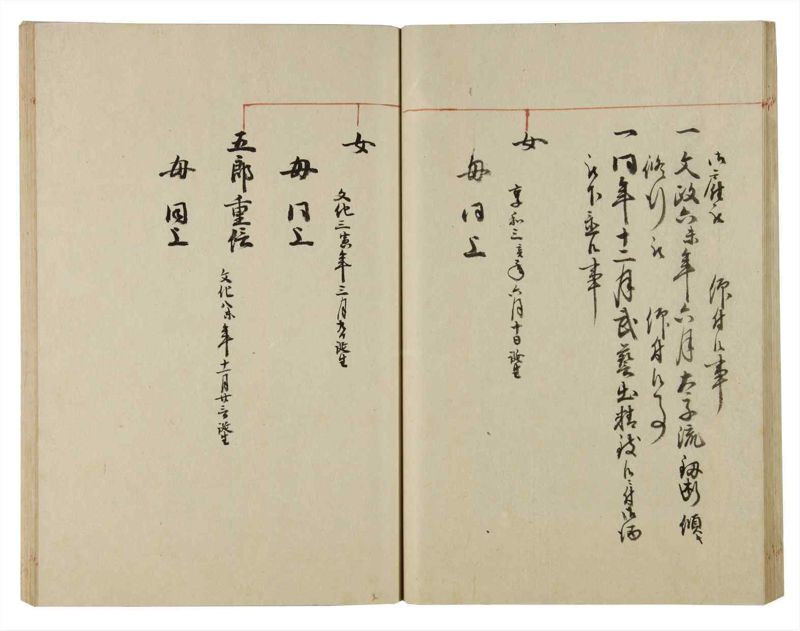 師付候事
一文政六未年六月太子流釼術傾
修行
師付候事
一同年十二月武藝出精致候ニ付御酒
被下置候事
女
享和三亥年六月十日誕生
母同上
女
文化三寅年三月 誕生
母同上
五郎重信
文化八未年十一月廿三日誕生
母同上